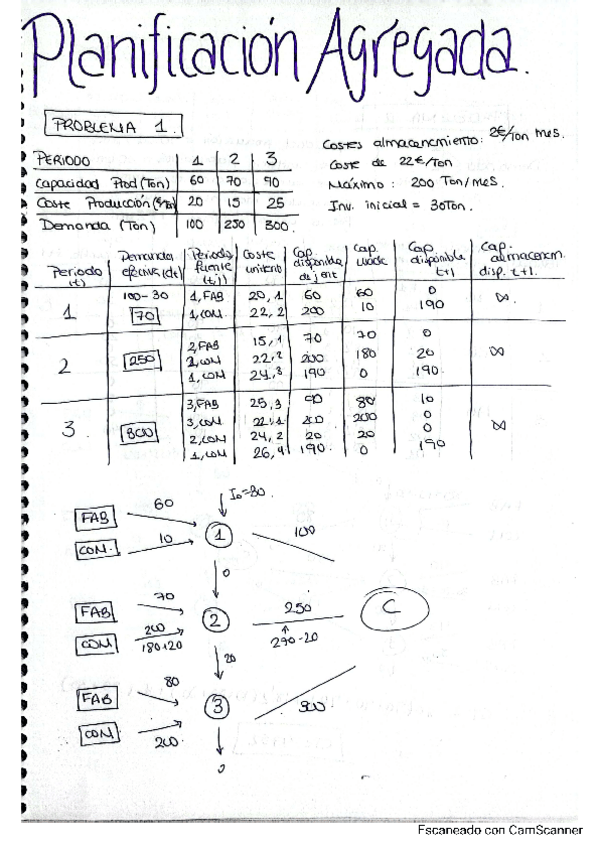 Planificación Agregada.
PROBLEMA 1.
Costes almacenamiento: 2€/Ton mes.
Coste de 22€/Ton
Máximo: 200 Ton/mes.
Inv. inicial = 30 Ton.
PERIODO 1 2 3
Capacidad Prod (Ton) 60 70 90
Coste Producción 20 15 25
Demanda (Ton) 100 250 300
Periodo (t) Demanda efectiva (dt) Periodo, fuente (t,j) Coste unitario Cap. disponible de j en t Cap. usada Cap. disponible t+1 Cap. almacenam. disp. t+1.
1 100-30 1, FAB 20, 1 60 60 0 ∞
70 1, CON. 22, 2 200 10 190
2 250 2, FAB 15, 1 70 70 0 ∞
2, CON 22, 2 200 180 20
1, CON 24, 3 190 0 190
3. 300 3, FAB 25, 3 90 80 10 ∞
3, CON 22, 1 200 200 0
2, CON 24, 2 20 20 0
1, CON 26, 4 190 0 190
I₀=30.
FAB 60 1 100
CON. 10
0
FAB 70 2 250 C
CON 200 180+20 270-20
20
FAB 80 3 300
CON 200
0
Escaneado con CamScanner